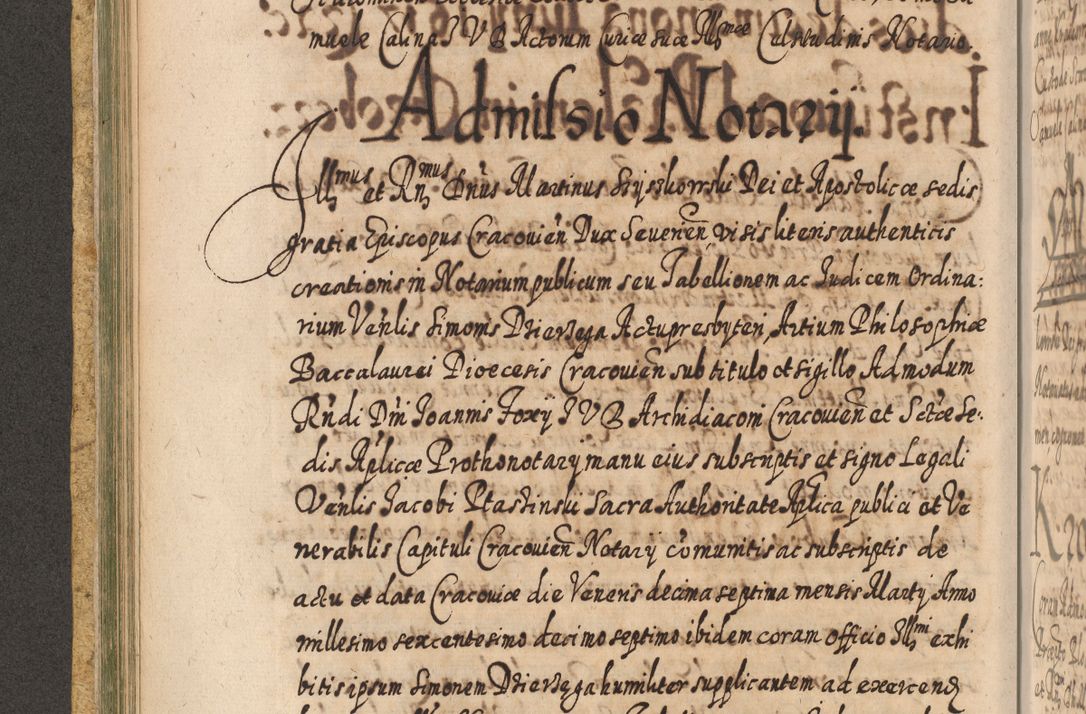 muele Calina I V D Actorum Curiæ suæ Illmæ Celsitudinis Notario.
Admissio Notarij.
Illmus et Rnmus Dnus Martinus Szyszkowski Dei et Apostolicæ sedis
gratia Episcopus Cracovien̄ Dux Severien̄, visis literis authenticis
creationis in Notarium publicum seu Tabellionem ac Iudicem Ordina:
rium Venlis Simonis Dzierzega Actu presbyteri, Artium Philosophiæ
Baccalaurei Dioecesis Cracovien̄ sub titulo et sigillo Admodum
Rndi Dni Ioannis Foxij I V D Archidiaconi Cracovien̄ et Sctæ Se:
dis Aplicæ Prothonotarij manu eius subscriptis et signo Legali
Venlis Jacobi Ptastinski Sacra Authoritate Aplica publici et Ve
nerabilis Capituli Cracovien̄ Notarij comunitis ac subscriptis de
actu et data Cracoviæ die Veneris decima septima mensis Martij Anno
millesimo sexcentesimo decimo septimo ibidem coram officio Illmi exhi
bitis ipsum Simonem Dzierzega humiliter supplicantem ad exercend